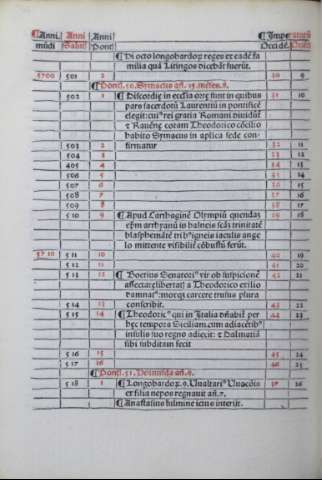 Anni Anni Anni Impe
mũdi Salut. Pont. Occidẽ. Oriẽt.
Di octo longobardoȝ reges ex eadẽ fa
milia quã Litingos dicebãt fuerũt.
5700 501 2 30 9
Pontif. 50. Symacus añ. 15. menses. 8.
502 1 Discordie in ecclesia ortȩ sunt in quibus 31 10
pars sacerdotũ Laurentiũ in pontificẽ
elegit: cui⁹ rei gratia Romani dividũt
& Rauẽnȩ coram Theodorico cõcilio
habito Symacus in aplica sede con
503 2 firmatur 32 11
504 3 33 12
405 4 34 13
506 5 14
507 6 15
508 7 37 16
509 8 17
510 9 Apud Carthaginẽ Olympiũ quendaȝ 18
ep̃m arrhyanũ in balneis scãs trinitatẽ
blasphemãtẽ tri⁹ igneis iaculis ange
lo mittente visibiliť cõbustũ ferũt.
5710 511 10 40 19
512 11 41 20
513 12 Boetius Senatori⁹ vir ob suspicionẽ 42 21
affectatȩ libertat̃ a Theodorico exilio
damnať: moxqȝ carcere trusus plura
514 13 conscribit. 43 22
515 14 Theodoric⁹ qui in Italia dñabiť per 44 23
hȩc tempora Siciliam cum adiacẽtib⁹
insulis suo regno adiecit: & Dalmatiã
sibi subditam fecit
516 15 45 24
517 16 46 25
Ponti. 51. Hormisda añ. 9.
518 1 Longobardoȝ. 9. Unaltari⁹ Unacõis 26
ex filia nepos regnauit añ. 7.
Anastasius fulmine ictus interiit.